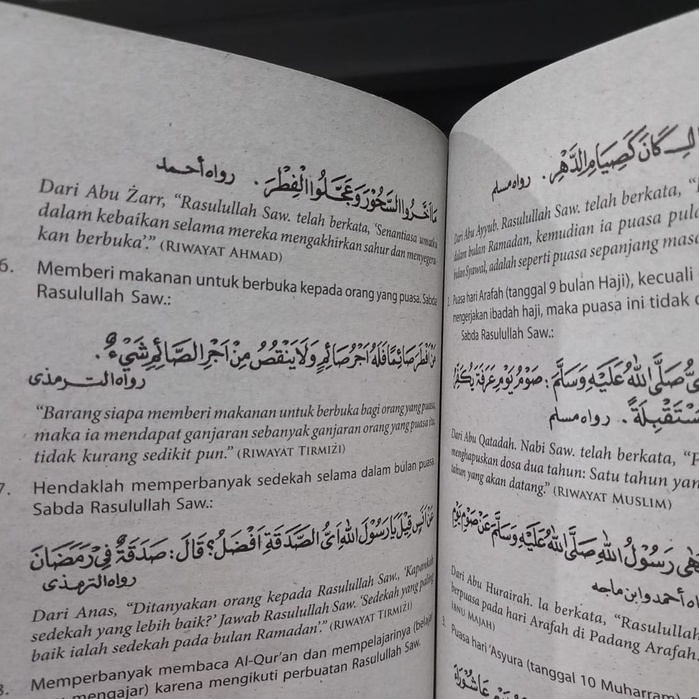 مَا أَخَّرُوا السَّحُوْرَ وَعَجَّلُوا الْفِطْرَ . رواه أحمد
Dari Abu Żarr, “Rasulullah Saw. telah berkata, ‘Senantiasa umatku
dalam kebaikan selama mereka mengakhirkan sahur dan menyegera-
kan berbuka’.” (RIWAYAT AHMAD)
6. Memberi makanan untuk berbuka kepada orang yang puasa. Sabda
Rasulullah Saw.:
مَنْ اَفْطَرَ صَائِمًا فَلَهُ اَجْرُ صَائِمٍ وَلَا يَنْقُصُ مِنْ اَجْرِ الصَّائِمِ شَيْءٌ .
رواه الترمذى
“Barang siapa memberi makanan untuk berbuka bagi orang yang puasa,
maka ia mendapat ganjaran sebanyak ganjaran orang yang puasa itu,
tidak kurang sedikit pun.” (RIWAYAT TIRMIŻI)
7. Hendaklah memperbanyak sedekah selama dalam bulan puasa.
Sabda Rasulullah Saw.:
عَنْ اَنَسٍ قِيْلَ يَارَسُوْلَ اللهِ اَيُّ الصَّدَقَةِ اَفْضَلُ؟ قَالَ : صَدَقَةٌ فِيْ رَمَضَانَ
رواه الترمذى
Dari Anas, “Ditanyakan orang kepada Rasulullah Saw., ‘Kapankah
sedekah yang lebih baik?’ Jawab Rasulullah Saw. ‘Sedekah yang paling
baik ialah sedekah pada bulan Ramadan’.” (RIWAYAT TIRMIŻI)
8. Memperbanyak membaca Al-Qur’an dan mempelajarinya (belajar
mengajar) karena mengikuti perbuatan Rasulullah Saw.
كَانَ كَصِيَامِ الدَّهْرِ . رواه مسلم
Dari Abu Ayyub. Rasulullah Saw. telah berkata, “
dalam bulan Ramadan, kemudian ia puasa pula
bulan Syawal, adalah seperti puasa sepanjang masa
Puasa hari Arafah (tanggal 9 bulan Haji), kecuali
mengerjakan ibadah haji, maka puasa ini tidak
Sabda Rasulullah Saw.:
صَلَّى اللهُ عَلَيْهِ وَسَلَّمَ : صَوْمُ يَوْمِ عَرَفَةَ يُكَفِّرُ
رواه مسلم
Dari Abu Qatadah. Nabi Saw. telah berkata, “
menghapuskan dosa dua tahun: Satu tahun yan
tahun yang akan datang.” (RIWAYAT MUSLIM)
رَسُوْلُ اللهِ صَلَّى اللهُ عَلَيْهِ وَسَلَّمَ عَنْ صَوْمِ يَوْمِ
أحمد وابن ماجه
Dari Abu Hurairah. Ia berkata, “Rasulullah
berpuasa pada hari Arafah di Padang Arafah.
IBNU MAJAH)
3. Puasa hari ‘Asyura (tanggal 10 Muharram)